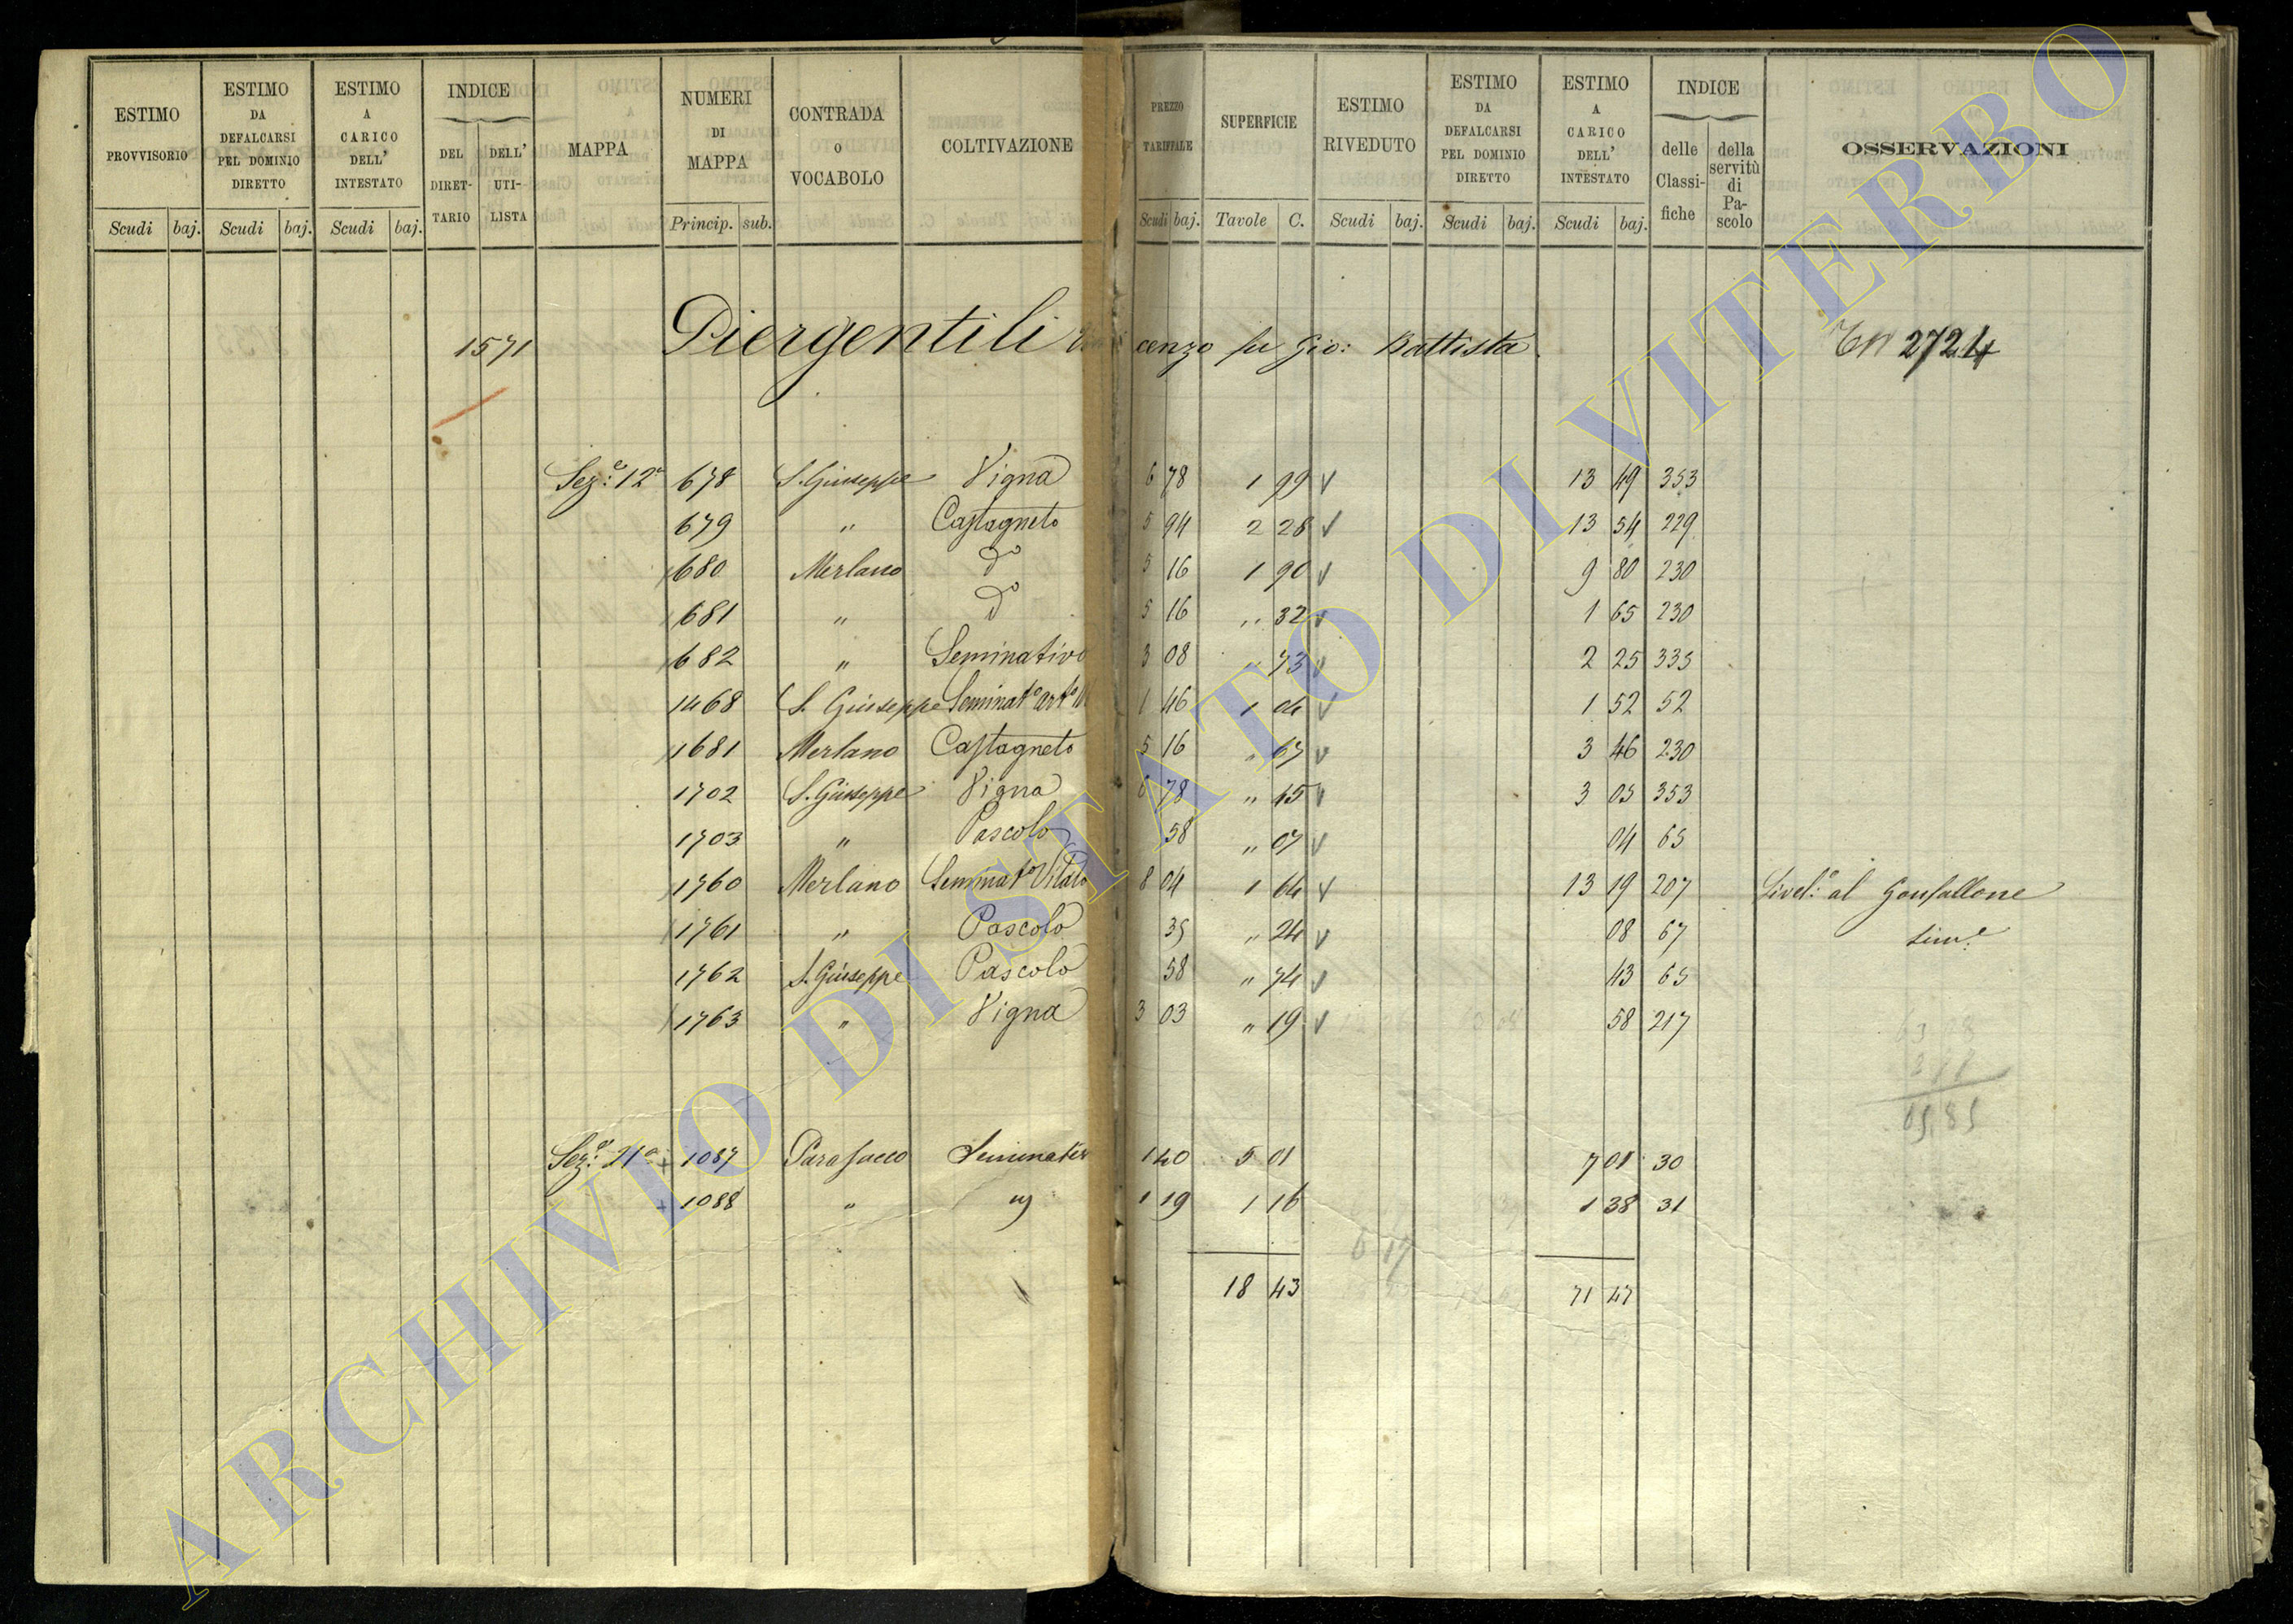 ESTIMO PROVVISORIO | ESTIMO DA DEFALCARSI PEL DOMINIO DIRETTO | ESTIMO A CARICO DELL' INTESTATO | INDICE DEL DIRET-TARIO | DELL' UTI-LISTA | MAPPA | NUMERI DI MAPPA | CONTRADA O VOCABOLO | COLTIVAZIONE | PREZZO TARIFFALE | SUPERFICIE | ESTIMO RIVEDUTO | ESTIMO DA DEFALCARSI PEL DOMINIO DIRETTO | ESTIMO A CARICO DELL' INTESTATO | INDICE delle Classi-fiche | della servitù di Pa-scolo | OSSERVAZIONI
Scudi baj. Scudi baj. Scudi baj. Princip. sub. Scudi baj. Tavole C. Scudi baj. Scudi baj. Scudi baj.
1571 Piergentili cenzo fu Gio: Battista 2724
Sez.e 12a 678 S. Giuseppe Vigna 6 78 1 99 V 13 49 353
679 " Castagneto 5 94 2 28 V 13 54 229
680 Merlano do 5 16 1 90 V 9 80 230
681 " do 5 16 " 32 V 1 65 230
682 " Seminativo 3 08 " 73 V 2 25 335
1468 S. Giuseppe Seminato art.o 1 46 1 04 V 1 52 52
1681 Merlano Castagneto 5 16 " 67 V 3 46 230
1702 S. Giuseppe Vigna 6 78 " 45 V 3 05 353
1703 " Pascolo 58 " 07 V 04 65
1760 Merlano Seminato Vitato 8 04 1 64 V 13 19 207 Livel.o al Gonfallone
1761 " Pascolo 35 " 24 V 08 67 Sim.e
1762 S. Giuseppe Pascolo 58 " 74 V 43 65
1763 " Vigna 3 03 " 19 V 58 217
Sez.e 21a + 1087 Parasacco Seminativ 1 40 5 01 7 01 30
+ 1088 " " 1 19 1 16 1 38 31
18 43 71 47
ARCHIVIO DI STATO DI VITERBO